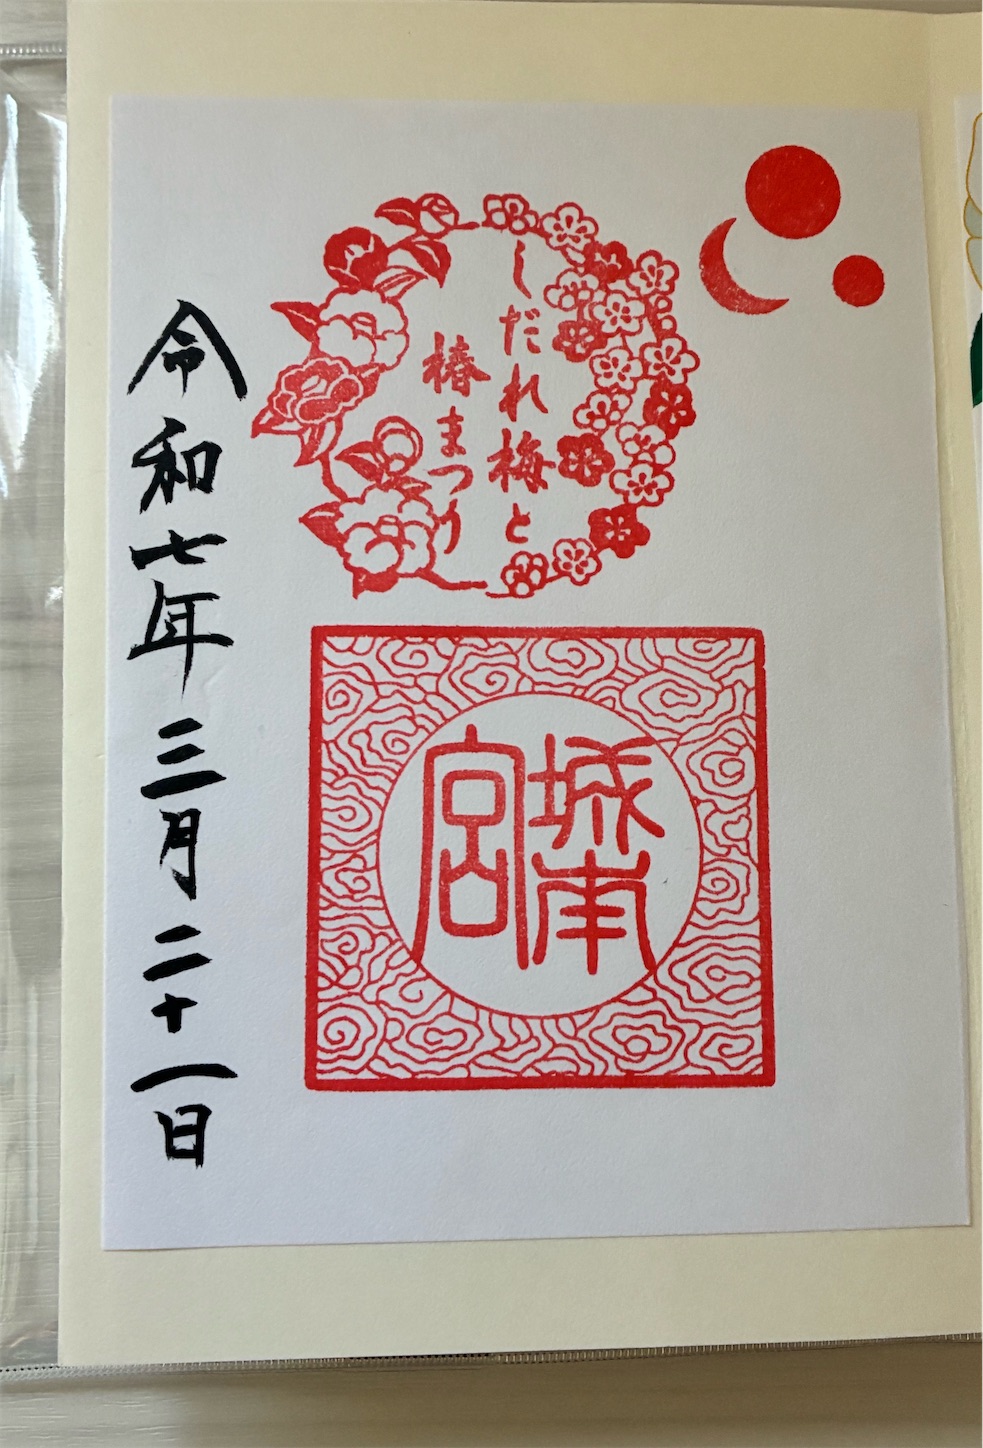 しだれ梅と
椿まつり
城南
宮
令和七年三月二十一日